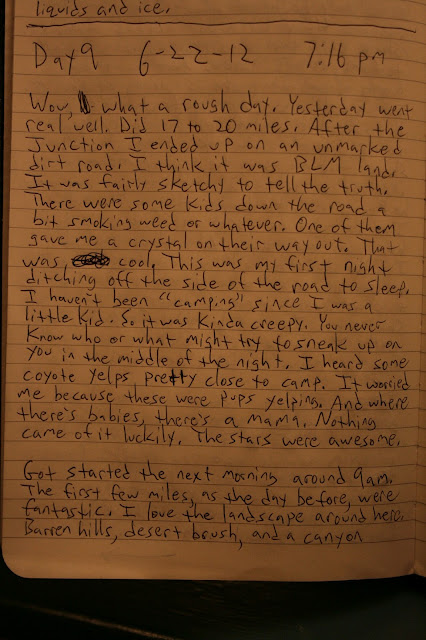 liquids and ice.
Day 9 6-22-12 7:16 pm
Wow, what a rough day. Yesterday went
real well. Did 17 to 20 miles. After the
Junction I ended up on an unmarked
dirt road. I think it was BLM land.
It was fairly sketchy to tell the truth.
There were some kids down the road a
bit smoking weed or whatever. One of them
gave me a crystal on their way out. That
was cool. This was my first night
ditching off the side of the road to sleep.
I haven't been "camping" since I was a
little kid. So it was kinda creepy. You never
know who or what might try to sneak up on
you in the middle of the night. I heard some
coyote yelps pretty close to camp. It worried
me because these were pups yelping. And where
there's babies, there's a mama. Nothing
came of it luckily. The stars were awesome.
Got started the next morning around 9am.
The first few miles, as the day before, were
fantastic. I love the landscape around here.
Barren hills, desert brush, and a canyon